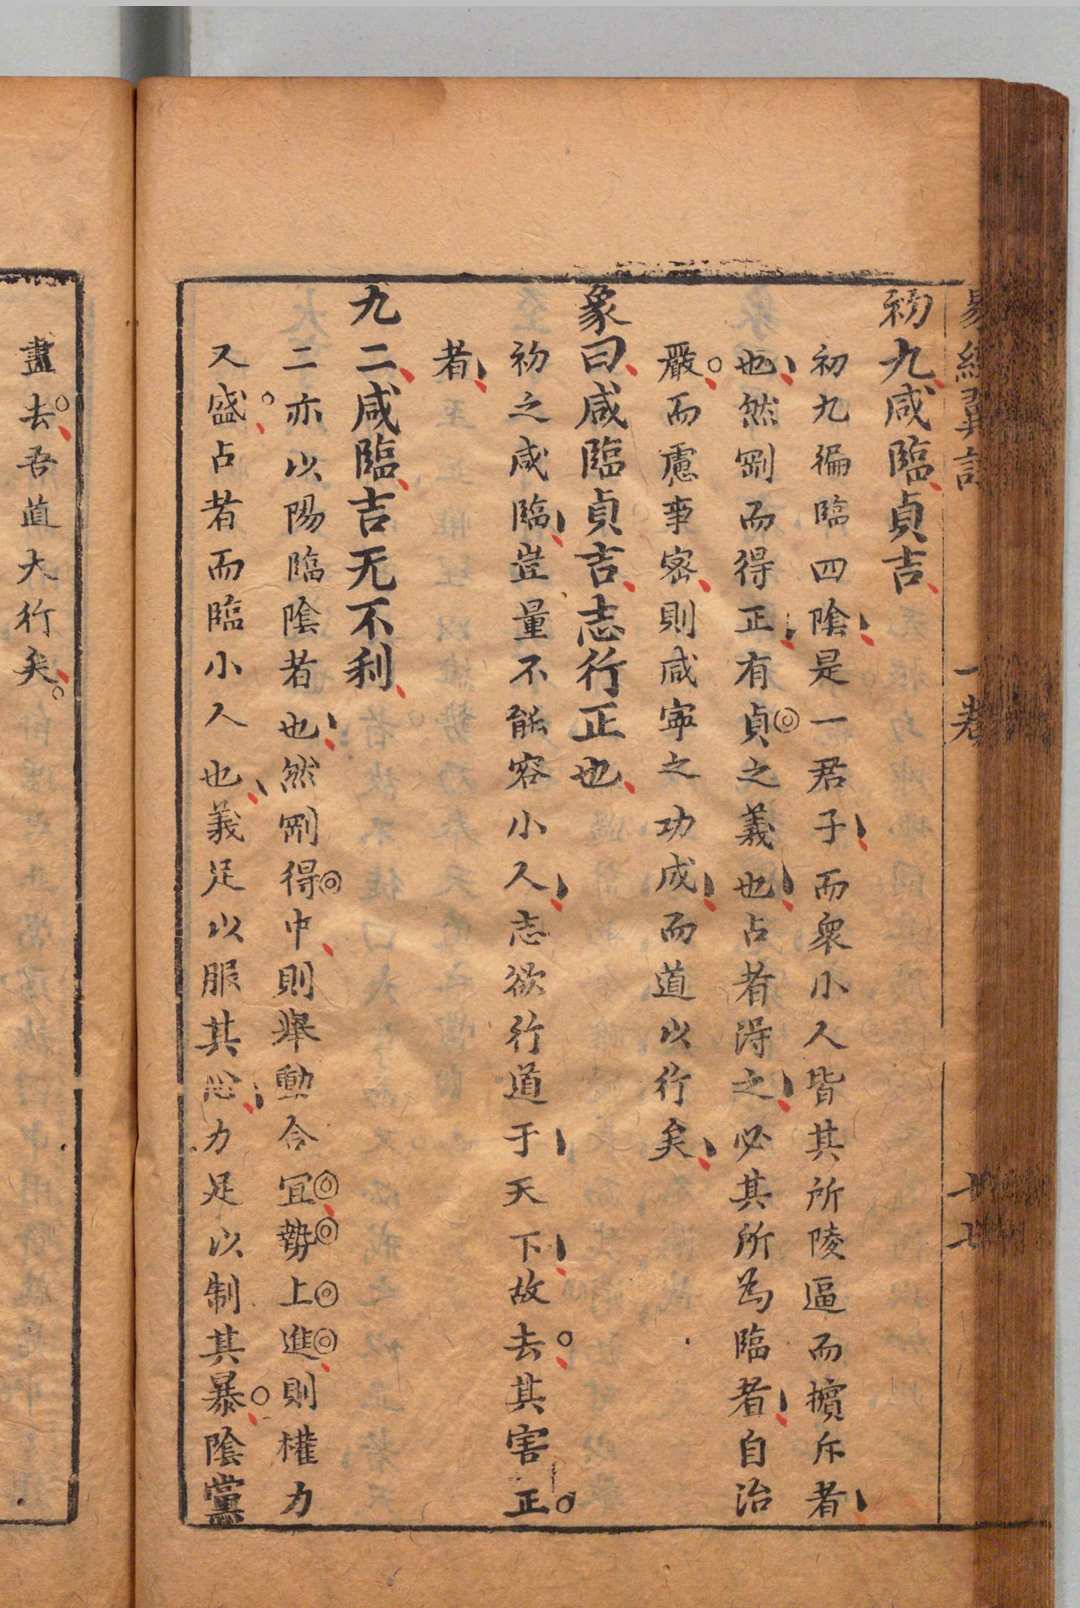 初九咸臨貞吉
初九徧臨四陰是一君子而衆小人皆其所陵逼而擯斥者
也然剛而得正有貞之義也占者得之必其所爲臨者自治
嚴而慮事密則咸寧之功成而道以行矣
象曰咸臨貞吉志行正也
初之咸臨豈量不能容小人志欲行道于天下故去其害正
者
九二咸臨吉无不利
二亦以陽臨陰者也然剛得中則舉動合宜勢上進則權力
又盛占者而臨小人也義足以服其心力足以制其暴陰黨
盡去吾道大行矣
一卷
廿七